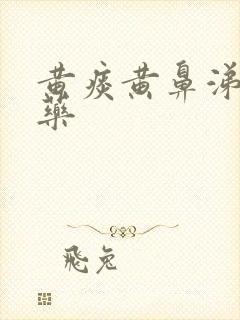 黄痰黄鼻涕
藥
飛兔